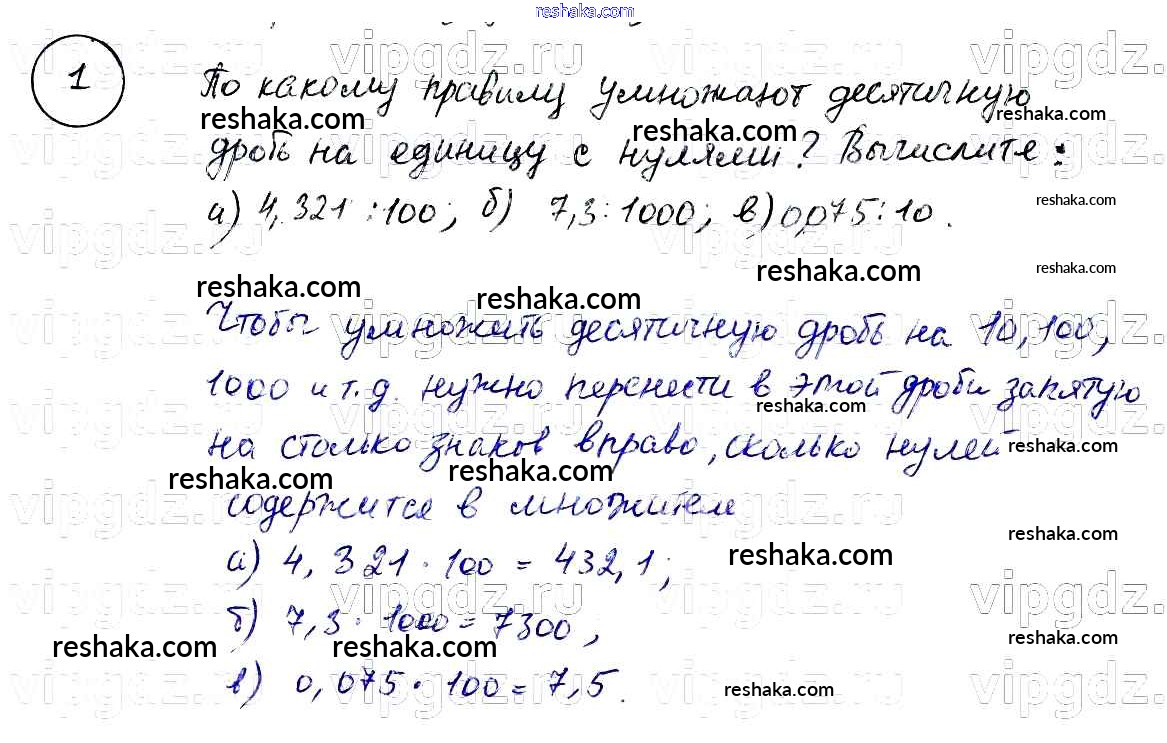 reshaka.com
1
По какому правилу умножают десятичную
reshaka.com reshaka.com reshaka.com
дробь на единицу с нулями? Вычислите:
а) 4,321 : 100; б) 7,3 : 1000; в) 0,075 : 10.
reshaka.com
reshaka.com reshaka.com reshaka.com reshaka.com
Чтобы умножить десятичную дробь на 10, 100,
1000 и т.д. нужно перенести в этой дроби запятую
reshaka.com
на столько знаков вправо, сколько нулей
reshaka.com reshaka.com reshaka.com
содержится в множителе
reshaka.com
а) 4,321 · 100 = 432,1;
reshaka.com
б) 7,3 · 1000 = 7300;
reshaka.com reshaka.com reshaka.com
в) 0,075 · 100 = 7,5.
reshaka.com
vipgdz.ru vipgdz.ru vipgdz.ru vipgdz.